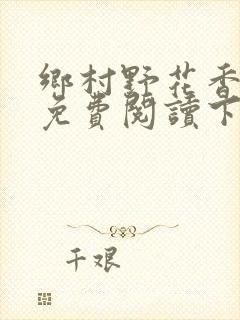 鄉村野花香
免費閱讀下
千艰